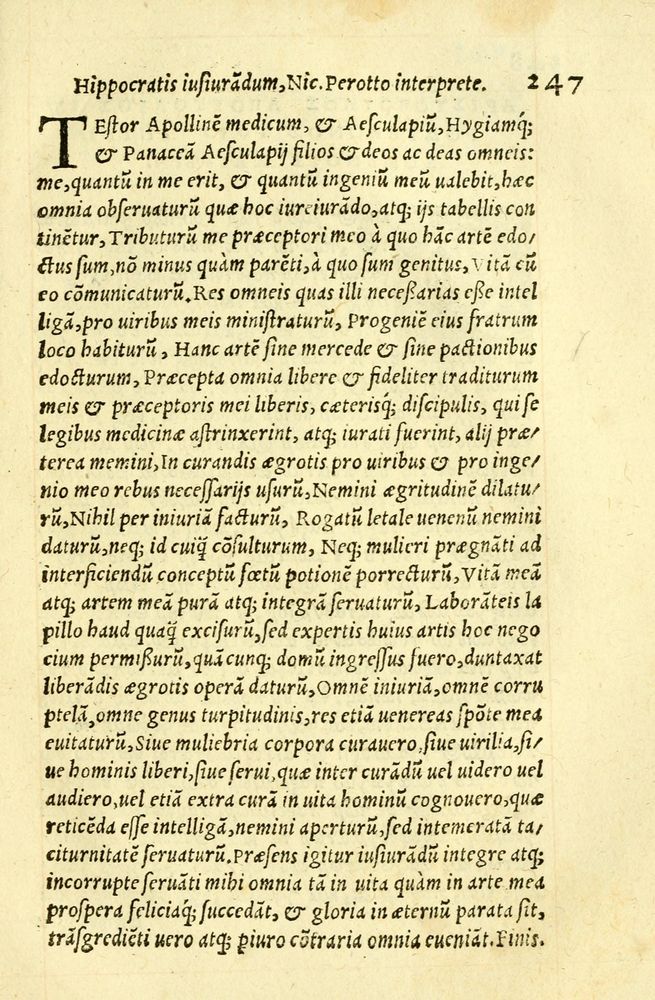 Hippocratis iusiurādum, Nic. Perotto interprete. 247
TEstor Apollinē medicum, & Aesculapiū, Hygiamq́;
& Panaceā Aesculapij filios & deos ac deas omneis:
me, quantū in me erit, & quantū ingeniū meū ualebit, hæc
omnia obseruaturū quæ hoc iureiurādo, atq; ijs tabellis con
tinētur, Tributurū me præceptori meo à quo hāc artē edo/
ctus sum, nō minus quàm parēti, à quo sum genitus, Vitā cū
eo cōmunicaturū. Res omneis quas illi necessarias esse intel
ligā, pro uiribus meis ministraturū, Progeniē eius fratrum
loco habiturū, Hanc artē sine mercede & sine pactionibus
edocturum, Præcepta omnia libere & fideliter traditurum
meis & præceptoris mei liberis, cæterisq́; discipulis, qui se
legibus medicinæ astrinxerint, atq; iurati fuerint, alij præ/
terea memini, In curandis ægrotis pro uiribus & pro inge/
nio meo rebus necessarijs usurū, Nemini ægritudinē dilatu/
rū, Nihil per iniuriā facturū, Rogatū letale uenenū nemini
daturū, neq; id cuiq̄ cōsulturum, Neq; mulieri prægnāti ad
interficiendū conceptū fœtū potionē porrecturū, Vitā meā
atq; artem meā purā atq; integrā seruaturū, Laborāteis la
pillo haud quaq̄ excisurū, sed expertis huius artis hoc nego
cium permissurū, quācunq; domū ingressus fuero, duntaxat
liberādis ægrotis operā daturū, Omnē iniuriā, omnē corru
ptelā, omne genus turpitudinis, res etiā uenereas spōte mea
euitaturū, Siue muliebria corpora curauero, siue uirilia, si/
ue hominis liberi, siue serui, quæ inter curādū uel uidero uel
audiero, uel etiā extra curā in uita hominū cognouero, quæ
reticēda esse intelligā, nemini aperturū, sed intemeratā ta/
citurnitatē seruaturū. Præsens igitur iusiurādū integre atq;
incorrupte seruāti mihi omnia tā in uita quàm in arte mea
prospera feliciaq́; succedāt, & gloria in æternū parata sit,
trāsgrediēti uero atq; piuro cōtraria omnia eueniāt. Finis.